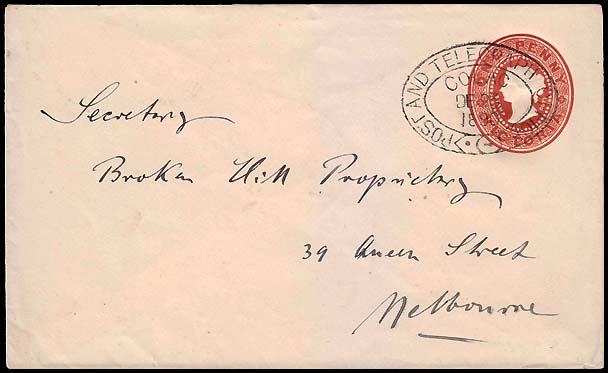 ONE PENNY
POST AND TELEGRAPH
DE
18
VICTORIA
Secretary
Broken Hill Proprietary
39 Queen Street
Melbourne